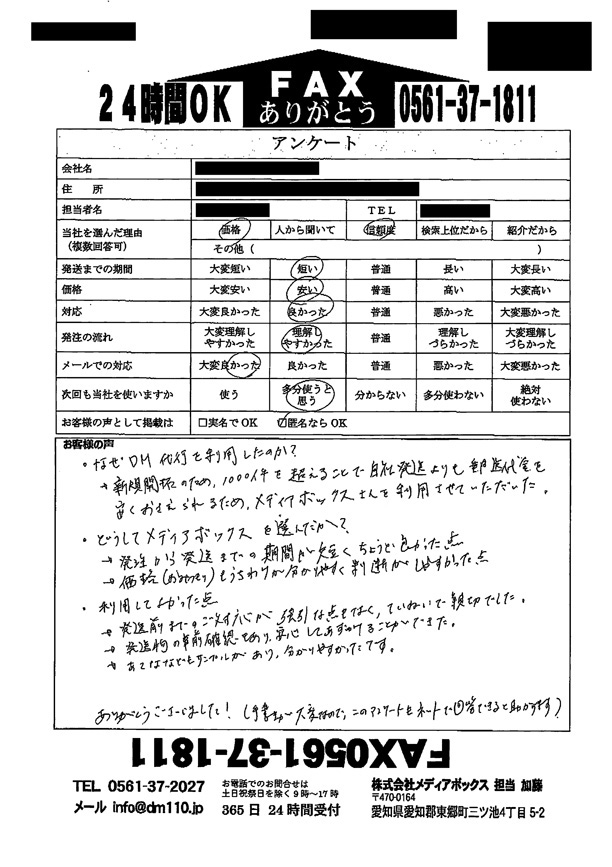 24時間OK
FAX
ありがとう
0561-37-1811
アンケート
会社名
住 所
担当者名 TEL
当社を選んだ理由 (複数回答可) 価格 人から聞いて 信頼度 検索上位だから 紹介だから
その他 ( )
発送までの期間 大変短い 短い 普通 長い 大変長い
価格 大変安い 安い 普通 高い 大変高い
対応 大変良かった 良かった 普通 悪かった 大変悪かった
発注の流れ 大変理解しやすかった 理解しやすかった 普通 理解しづらかった 大変理解しづらかった
メールでの対応 大変良かった 良かった 普通 悪かった 大変悪かった
次回も当社を使いますか 使う 多分使うと思う 分からない 多分使わない 絶対使わない
お客様の声として掲載は □実名でOK ☑匿名ならOK
お客様の声
・なぜDM代行を利用したのか?
→新規開拓のため、1000件を超えることで自社発送よりも郵送代金を
安くおさえられるため、メディアボックスさんを利用させていただいた。
・どうしてメディアボックスを選んだか?
→発注から発送までの期間が短くちょうど良かった点
→価格(お見積り)もうちわけが分かりやすく判断がしやすかった点
・利用してよかった点
→発送前までのご対応が強引な点もなく、ていねいで親切でした。
→発送物の事前確認もあり、安心してあずけることができた。
→あてななどもサンプルがあり、分かりやすかったです。
ありがとうございました!(手書きが大変なので、このアンケートをネットで回答できると助かります)
FAX0561-37-1811
TEL 0561-37-2027
メール info@dm110.jp
お電話でのお問合せは
土日祝祭日を除く9時~17時
365日 24時間受付
株式会社メディアボックス 担当 加藤
〒470-0164
愛知県愛知郡東郷町三ツ池4丁目5-2